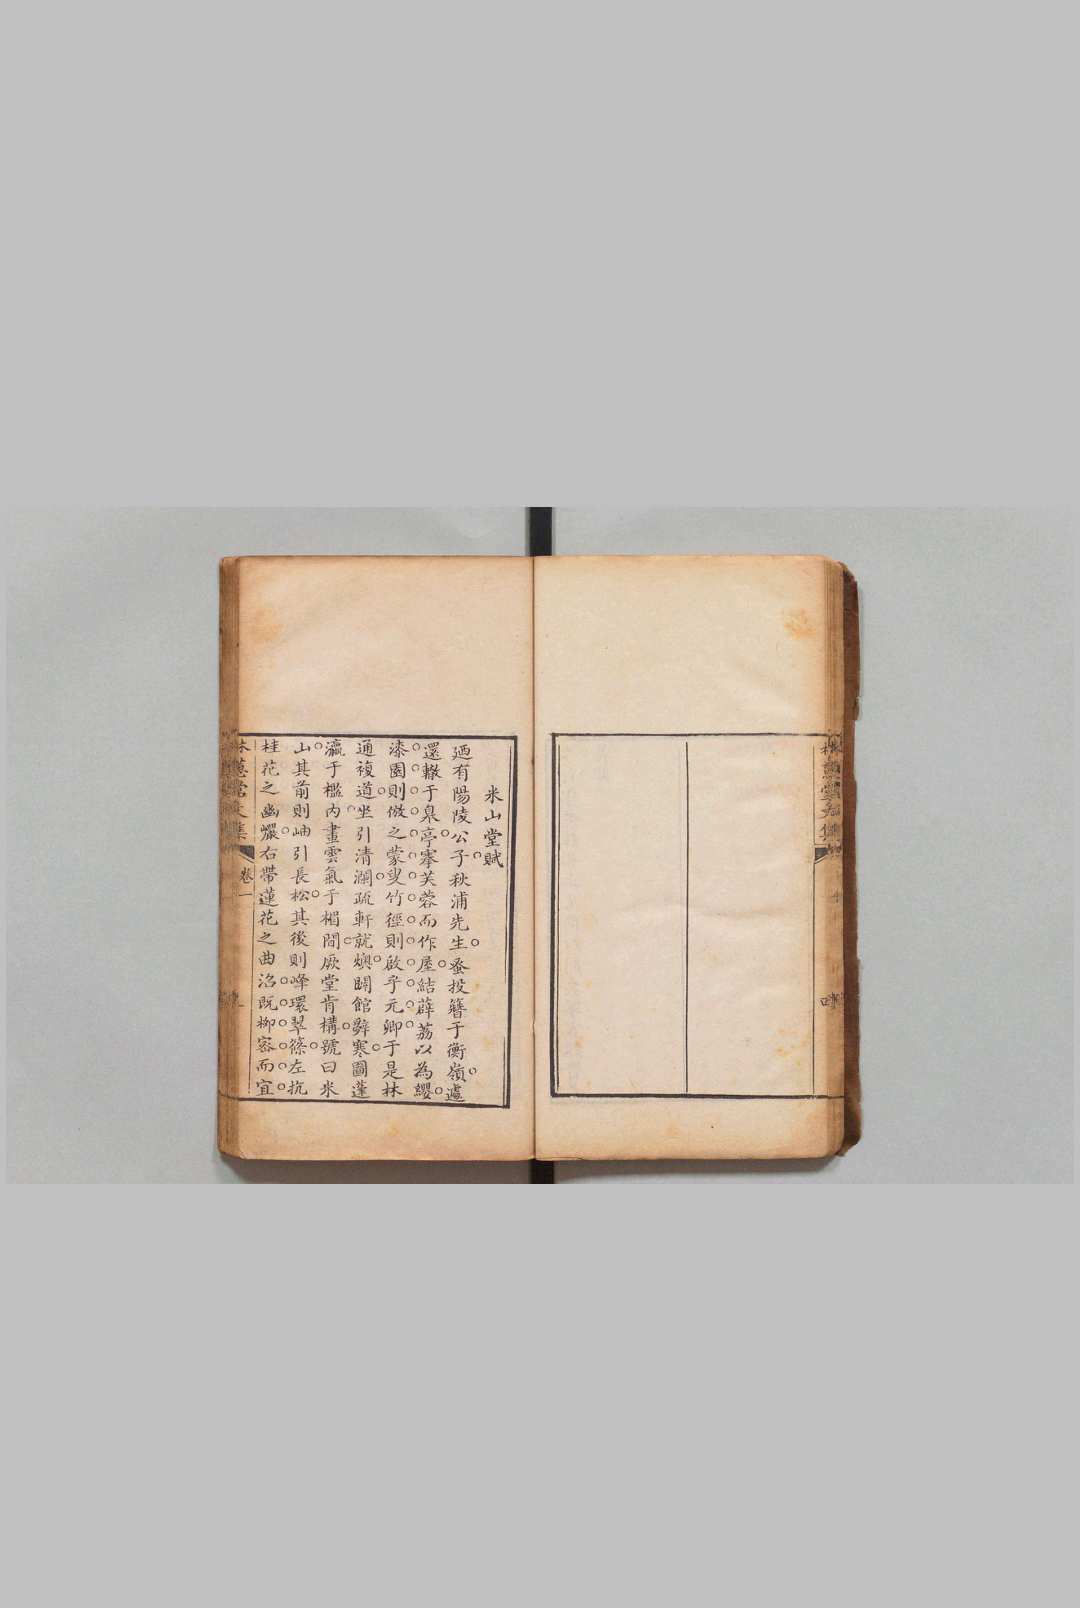 米山堂賦
迺有陽陵公子秋浦先生蚤投簪于衡嶺遽
還轍于臯亭搴芙蓉而作屋結薜荔以為纓
漆園則倣之蒙叟竹徑則啟乎元卿于是林
通複道坐引清瀾疏軒就燠闢館辭寒圖蓬
瀛于檻內畫雲氣于楣間厥堂肯構號曰米
山其前則岫引長松其後則峰環翠篠左抗
桂花之幽巘右帶蓮花之曲沼既柳密而宜
林蕙堂文集
卷一